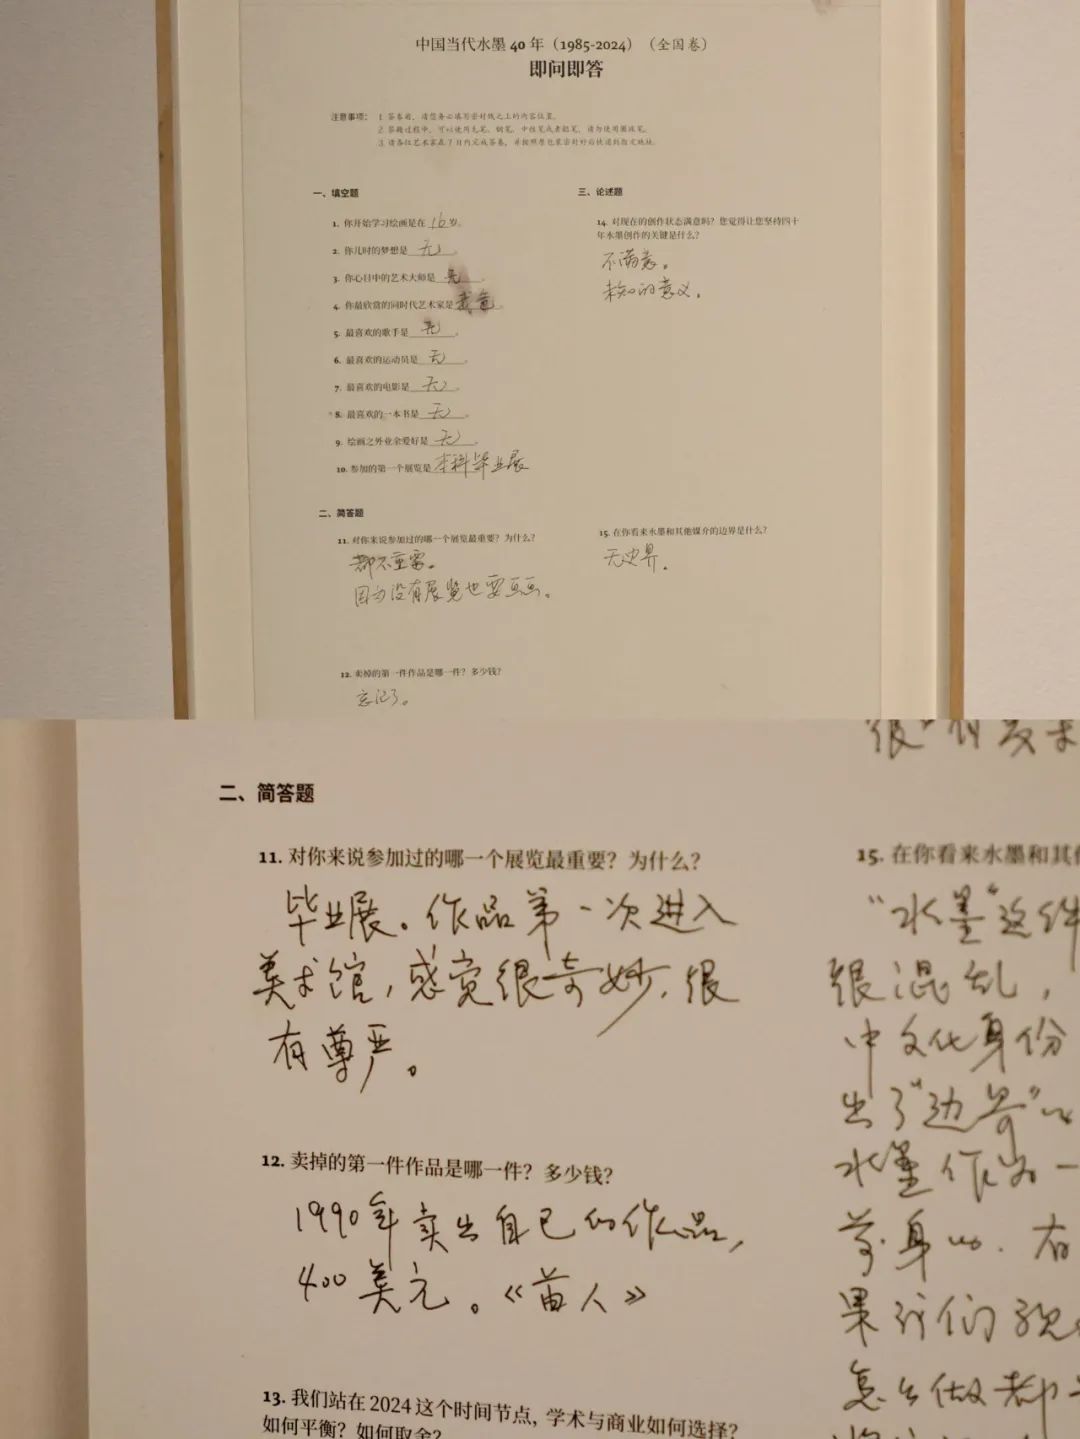 中国当代水墨 40 年（1985-2024）（全国卷）
即问即答
注意事项： 1. 答卷前，请您务必填写密封线之上的内容位置。
2. 答题过程中，可以使用毛笔、钢笔、中性笔或者铅笔，请勿使用圆珠笔。
3. 请各位艺术家在 7 日内完成答卷，并按照原包装密封好后快递到指定地址。
一、填空题
1. 你开始学习绘画是在 16 岁。
2. 你儿时的梦想是 无 。
3. 你心目中的艺术大师是 无 。
4. 你最欣赏的同时代艺术家是
5. 最喜欢的歌手是 无 。
6. 最喜欢的运动员是 无 。
7. 最喜欢的电影是 无 。
8. 最喜欢的一本书是 无 。
9. 绘画之外业余爱好是 无 。
10. 参加的第一个展览是 本科毕业展
二、简答题
11. 对你来说参加过的哪一个展览最重要？为什么？
都不重要。
因为没有展览也要画画。
12. 卖掉的第一件作品是哪一件？多少钱？
忘记了。
三、论述题
14. 对现在的创作状态满意吗？您觉得让您坚持四十
年水墨创作的关键是什么？
不满意。
未知的意义。
15. 在你看来水墨和其他媒介的边界是什么？
无边界。
二、简答题
11. 对你来说参加过的哪一个展览最重要？为什么？
毕业展。作品第一次进入
美术馆，感觉很奇妙，很
有尊严。
12. 卖掉的第一件作品是哪一件？多少钱？
1990年卖出自己的作品，
400美元。《苗人》
13. 我们站在 2024 这个时间节点，学术与商业如何选择？
如何平衡？如何取舍？
15. 在你看来水墨和其
“水墨”这件
很混乱，
中文化身份
出了“边界”
水墨作为一
身
果我们
怎么做都